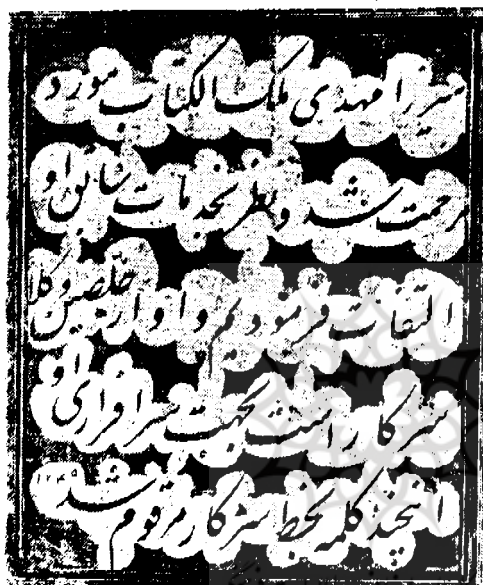 میرزا مهدی ملک الکتاب مورد
مرحمت شد و بنظر بخدمات سابق او
التفات فرمودیم و او از مخلصین وکلا
سرکار است بجهت سرافرازی او
اینچند کلمه بخط سرکار مرقوم شد